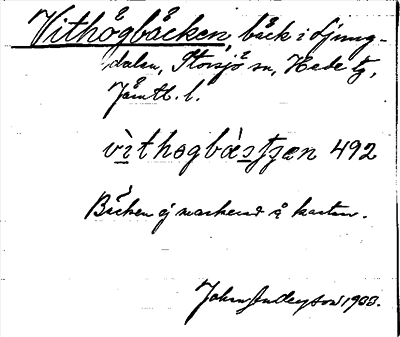 Vithögbäcken, bäck i Ljung-
dalen, Storsjö sn, Hede tg,
Jämtl. l.
vìthogbàstjen 492
Bäcken ej markerad å kartan.
John Anderson 1933.